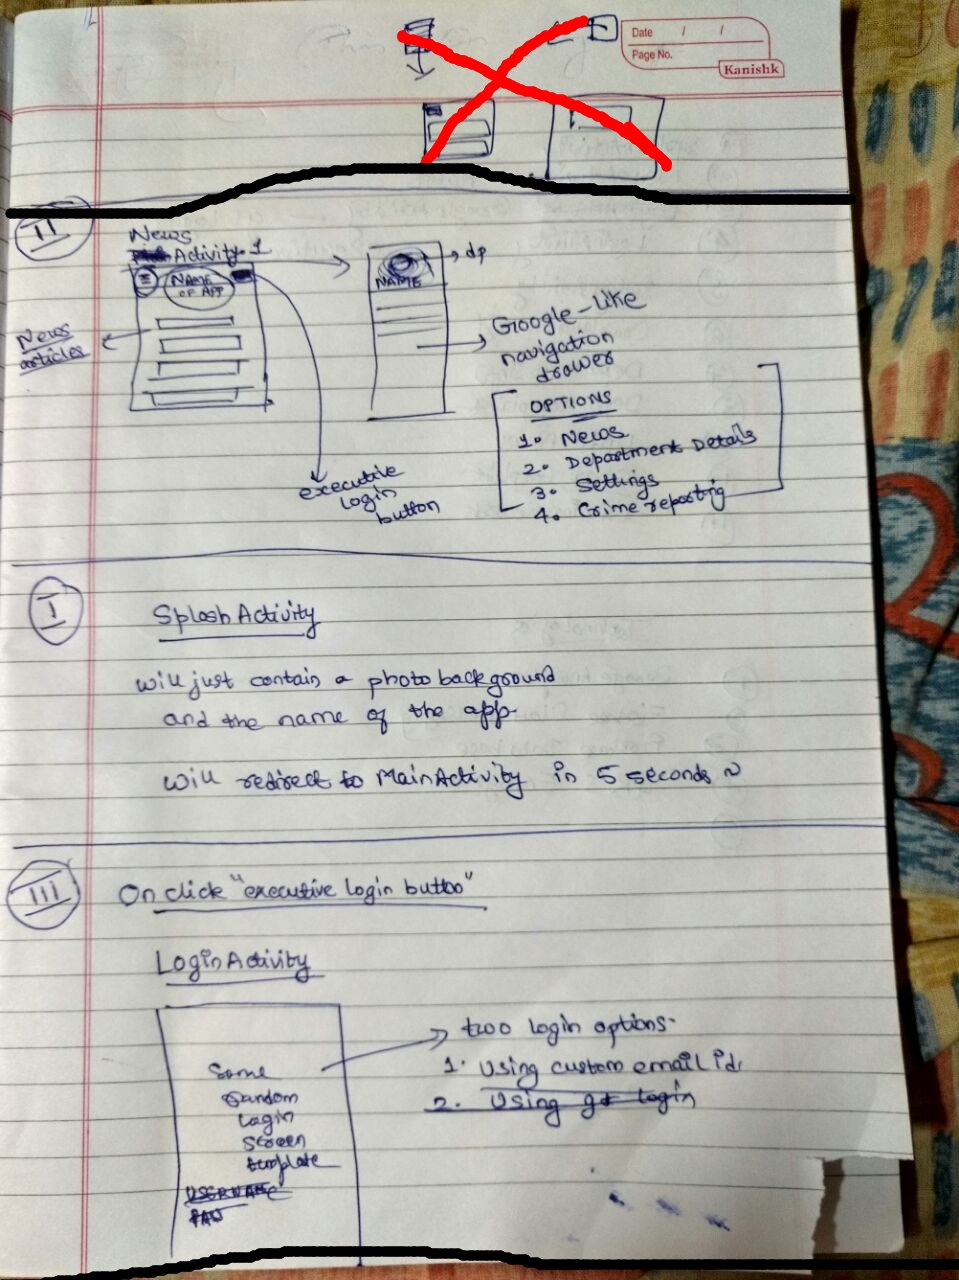 Date / /
Page No.
Kanishk
II
News
Activity-1
NAME
OF APP
dp
NAME
News
articles
Google-like
navigation
drawer
executive
login
button
OPTIONS
1. News
2. Department Details
3. Settings
4. Crime reporting
I
SplashActivity
will just contain a photo background
and the name of the app
will redirect to MainActivity in 5 seconds ~
III
On click "executive login button"
LoginActivity
Some
random
login
screen
template
USERNAME
two login options-
1. Using custom email id.
2. Using g+ login